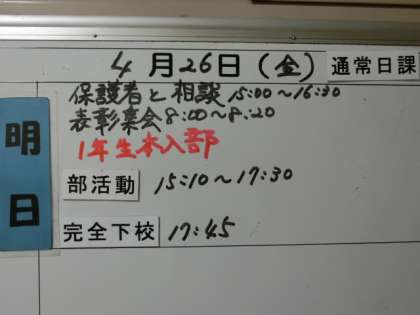 4月26日(金) 通常日課
明日
保護者と相談 15:00~16:30
表彰集会 8:00~8:20
1年生本入部
部活動 15:10~17:30
完全下校 17:45